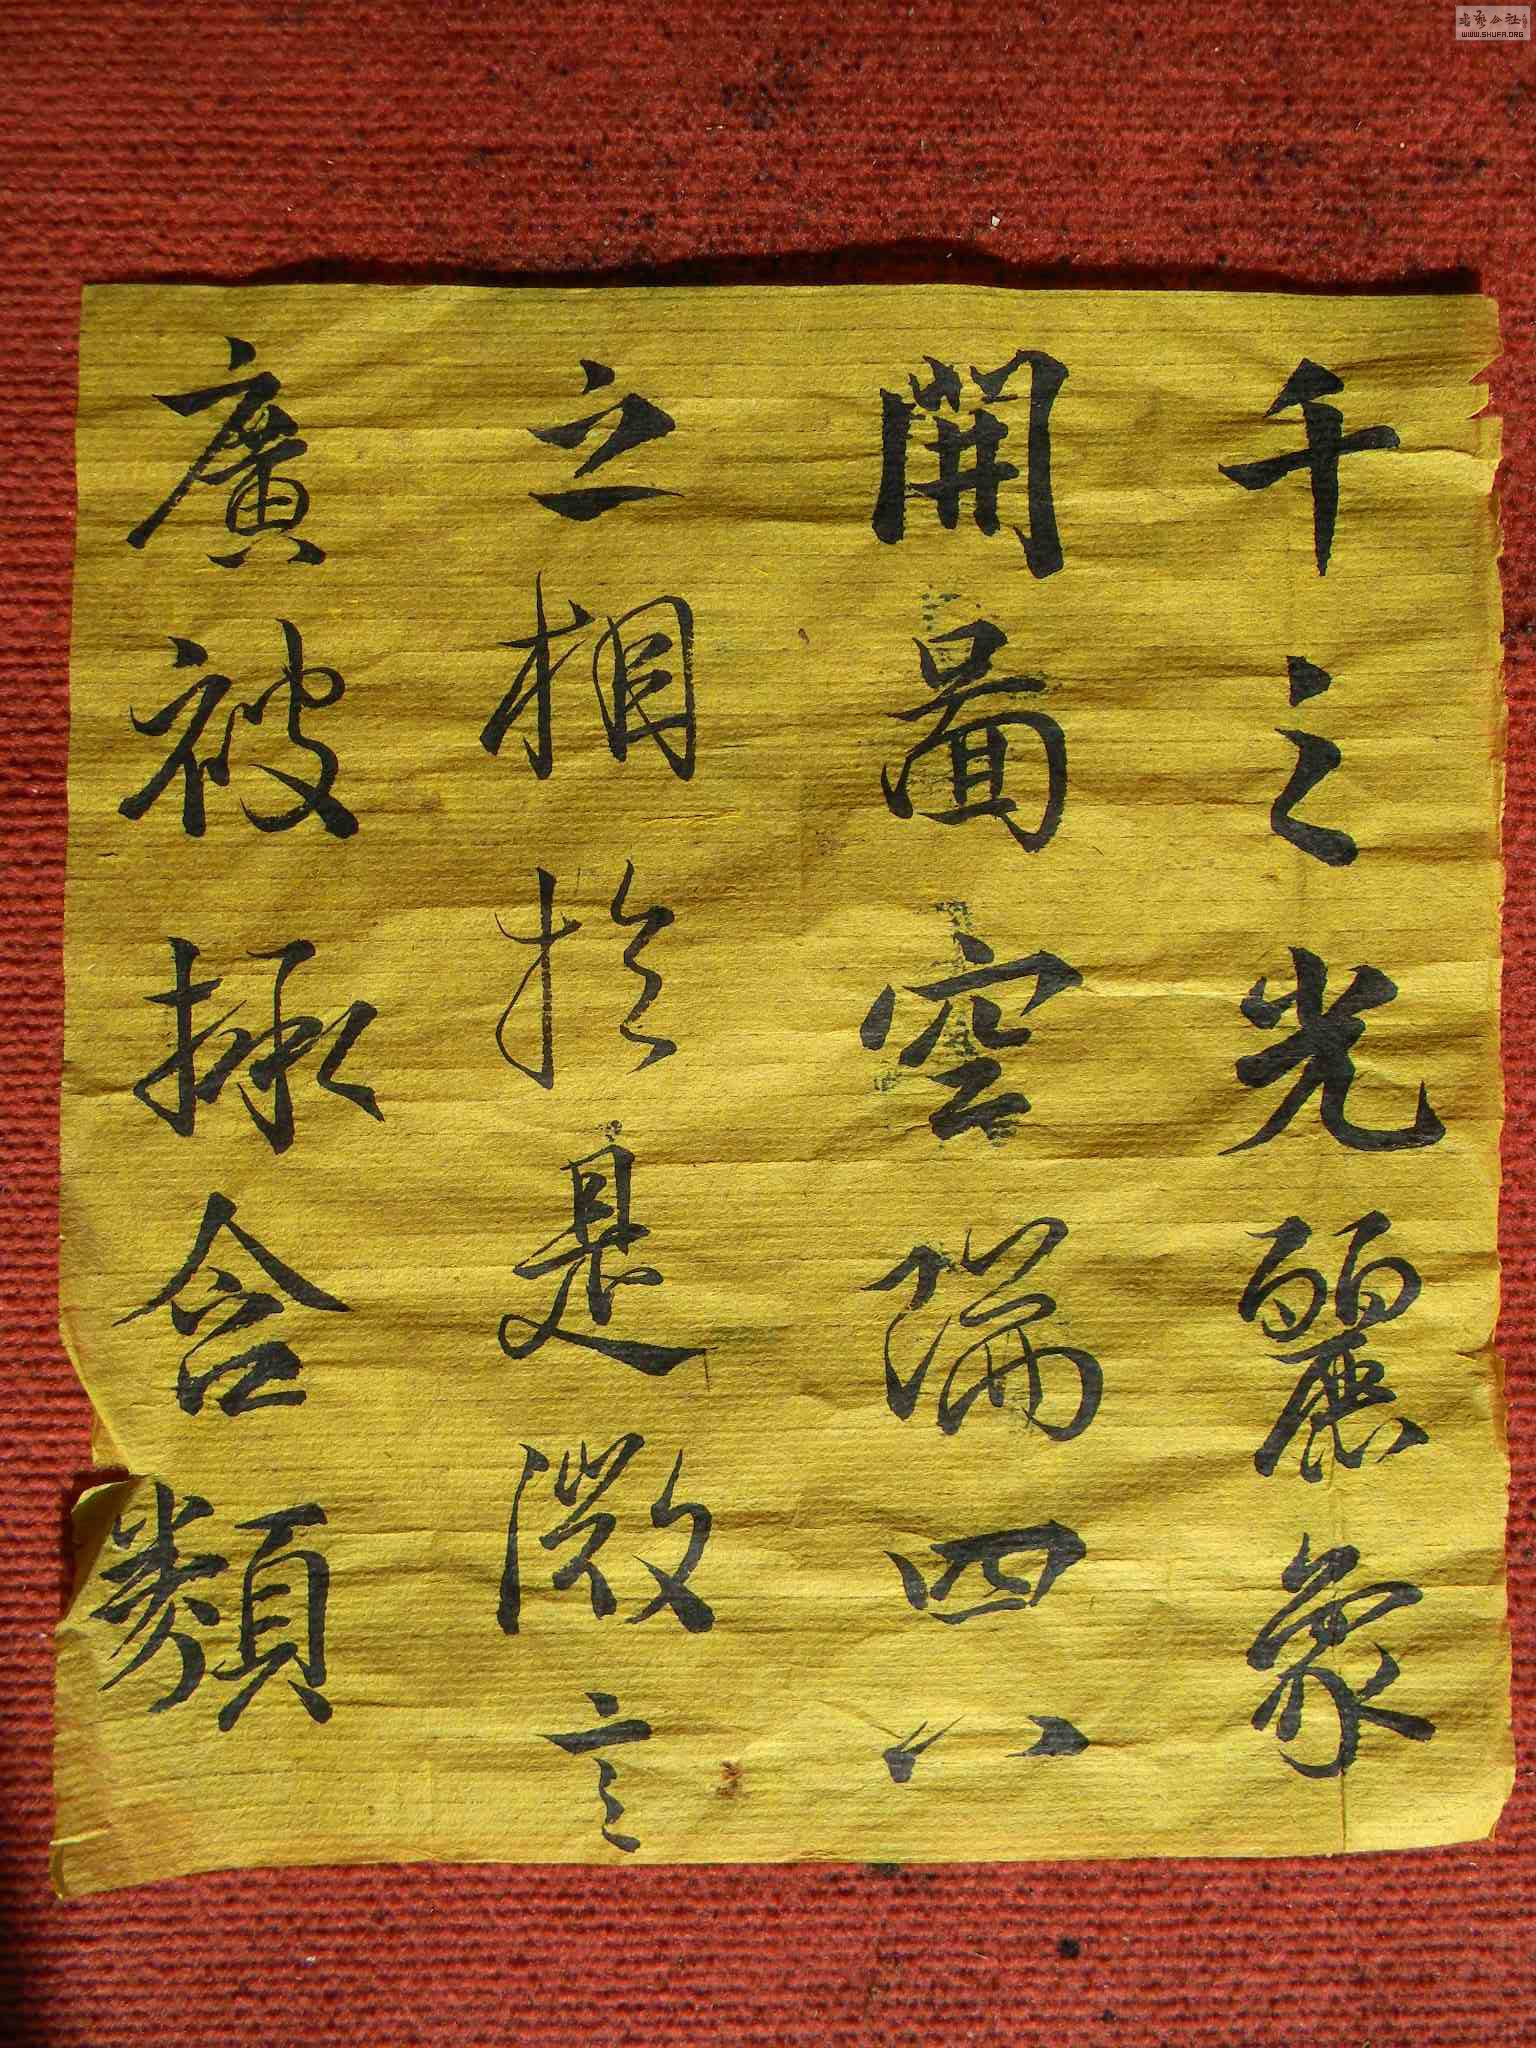 千之光麗象
開圖空端四八
之相扵是微言
廣被拯含類
書藝公社
WWW.SHUFA.ORG